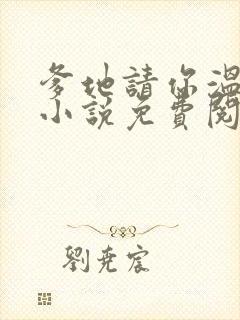 爹地請你溫
小說免費閱
劉堯宸